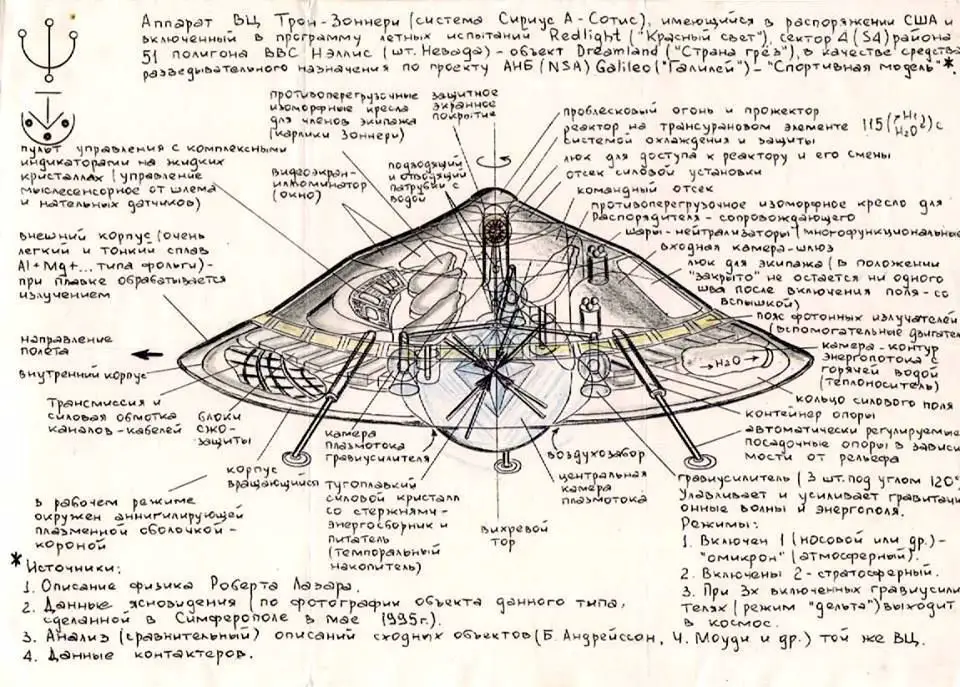 Аппарат ВЦ Трон-Зоннери (система Сириус А-Сотис), имеющийся в распоряжении США и
включенный в программу летных испытаний Redlight ("Красный свет"), сектор 4 (S4) района
51 полигона ВВС Нэллис (шт. Невада) - объект Dreamland ("Страна грёз"), в качестве средства
разведывательного назначения по проекту АНБ (NSA) Galileo ("Галилей") - "Спортивная модель"*.
противоперегрузочные
изоморфные кресла
для членов экипажа
(карлики Зоннери)
защитное
экранное
покрытие
пульт управления с комплексными
индикаторами на жидких
кристаллах (управление
мыслесенсорное от шлема
и нательных датчиков)
видеоэкран-
иллюминатор
(окно)
подводящий
и отводящий
патрубки с
водой
внешний корпус (очень
легкий и тонкий сплав
Al+Mg+... типа фольги) -
при плавке обрабатывается
излучением
направление
полета
внутренний корпус
Трансмиссия и
силовая обмотка
каналов-кабелей
блоки
СЖО-
защиты
корпус
вращающийся
в рабочем режиме
окружен аннигилирующей
плазменной оболочкой-
короной
камера
плазмотока
гравиусилителя
тугоплавкий
силовой кристалл
со стержнями-
энергосборник и
питатель
(темпоральный
накопитель)
вихревой
тор
воздухозабор
центральная
камера
плазмотока
проблесковый огонь и прожектор
реактор на трансурановом элементе 115 с
системой охлаждения и защиты
люк для доступа к реактору и его смены
отсек силовой установки
командный отсек
противоперегрузочное изоморфное кресло для
Распорядителя - сопровождающего
шары-нейтрализаторы (многофункциональные
входная камера-шлюз
люк для экипажа (в положении
"закрыто" не остается ни одного
шва после включения поля-со
вспышкой)
пояс фотонных излучателей
(вспомогательные двигател
→H2O→
камера-контур
энергопотока с
горячей водой
(теплоноситель)
кольцо силового поля
контейнер опоры
автоматически регулируемые
посадочные опоры в зависи
мости от рельефа
гравиусилитель (3 шт. под углом 120°
Улавливает и усиливает гравитаци
онные волны и энергополя.
Режимы:
1. Включен 1 (носовой или др.) -
"омикрон" (атмосферный).
2. Включены 2 - стратосферный.
3. При 3х включенных гравиусили
телях (режим "дельта") выходит
в космос.
* Источники:
1. Описание физика Роберта Лазара.
2. Данные ясновидения (по фотографии объекта данного типа,
сделанной в Симферополе в мае 1995г.).
3. Анализ (сравнительный) описаний сходных объектов (Б. Андрейссон, Ч. Моуди и др.) той же ВЦ.
4. Данные контактеров.